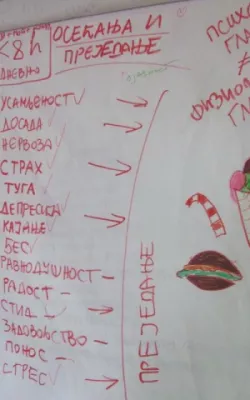 <8h
ДНЕВНО
ОСЕЋАЊА И
ПРЕЈЕДАЊЕ
УСАМЉЕНОСТ
ДОСАДА
НЕРВОЗА
СТРАХ
ТУГА
ДЕПРЕСИЈА
КАЈАЊЕ
БЕС
РАВНОДУШНОСТ –
РАДОСТ –
СТИД –
ЗАДОВОЉСТВО –
ПОНОС –
СТРЕС
ПРЕЈЕДАЊЕ
ПСИХО
ГЛ
≠
ФИЗИО
ГЛ